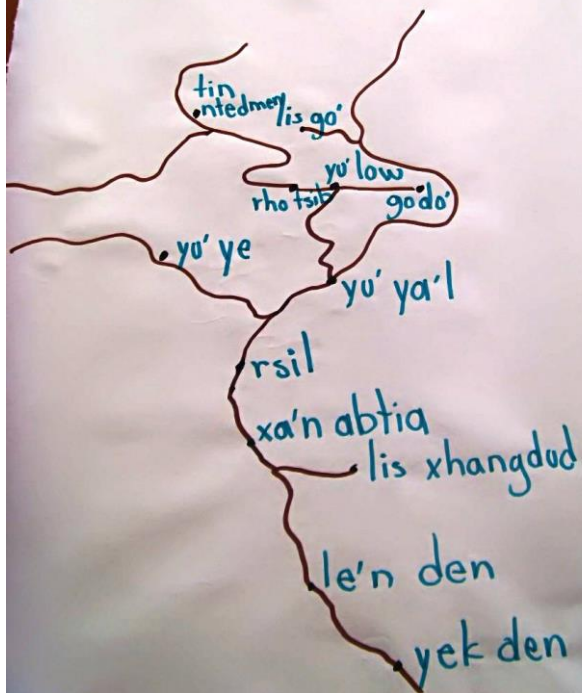 tin
ntedmery
lis go'
yu' low
rho tsib
godo'
yu' ye
yu' ya'l
rsil
xa'n abtia
lis xhangdud
le'n den
yek den